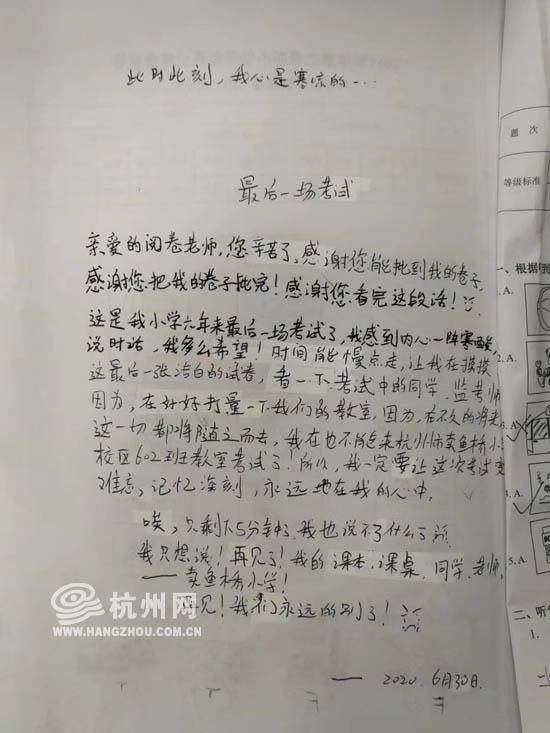 此时此刻，我心是寒凉的…
最后一场考试
亲爱的阅卷老师，您辛苦了，感谢您能批到我的卷子，
感谢您把我的卷子批完！感谢您看完这段话！
这是我小学六年来最后一场考试了，我感到内心一阵寒酸，
说时话，我多么希望！时间能慢点走，让我在摸摸
这最后一张洁白的试卷，看一下考试中的同学、监考师
因为，在好好打量一下我们的教室，因为，在不久的将来
这一切都将随之而去，我在也不能来杭州市卖鱼桥小
校区602班教室考试了！所以，我一定要让这次考试变
难忘，记忆深刻，永远地在我的心中。
唉，只剩下5分钟了，我也说不了什么了
我只想说！再见了！我的课本，课桌，同学，老师，
——卖鱼桥小学！
再见！我们永远的别了！
—— 2020.6月30日.
杭州网
WWW.HANGZHOU.COM.CN
题 次
等级标准
一、根据
A.
2.A.
3.A.
4.A.
5.A.
二、听
1.